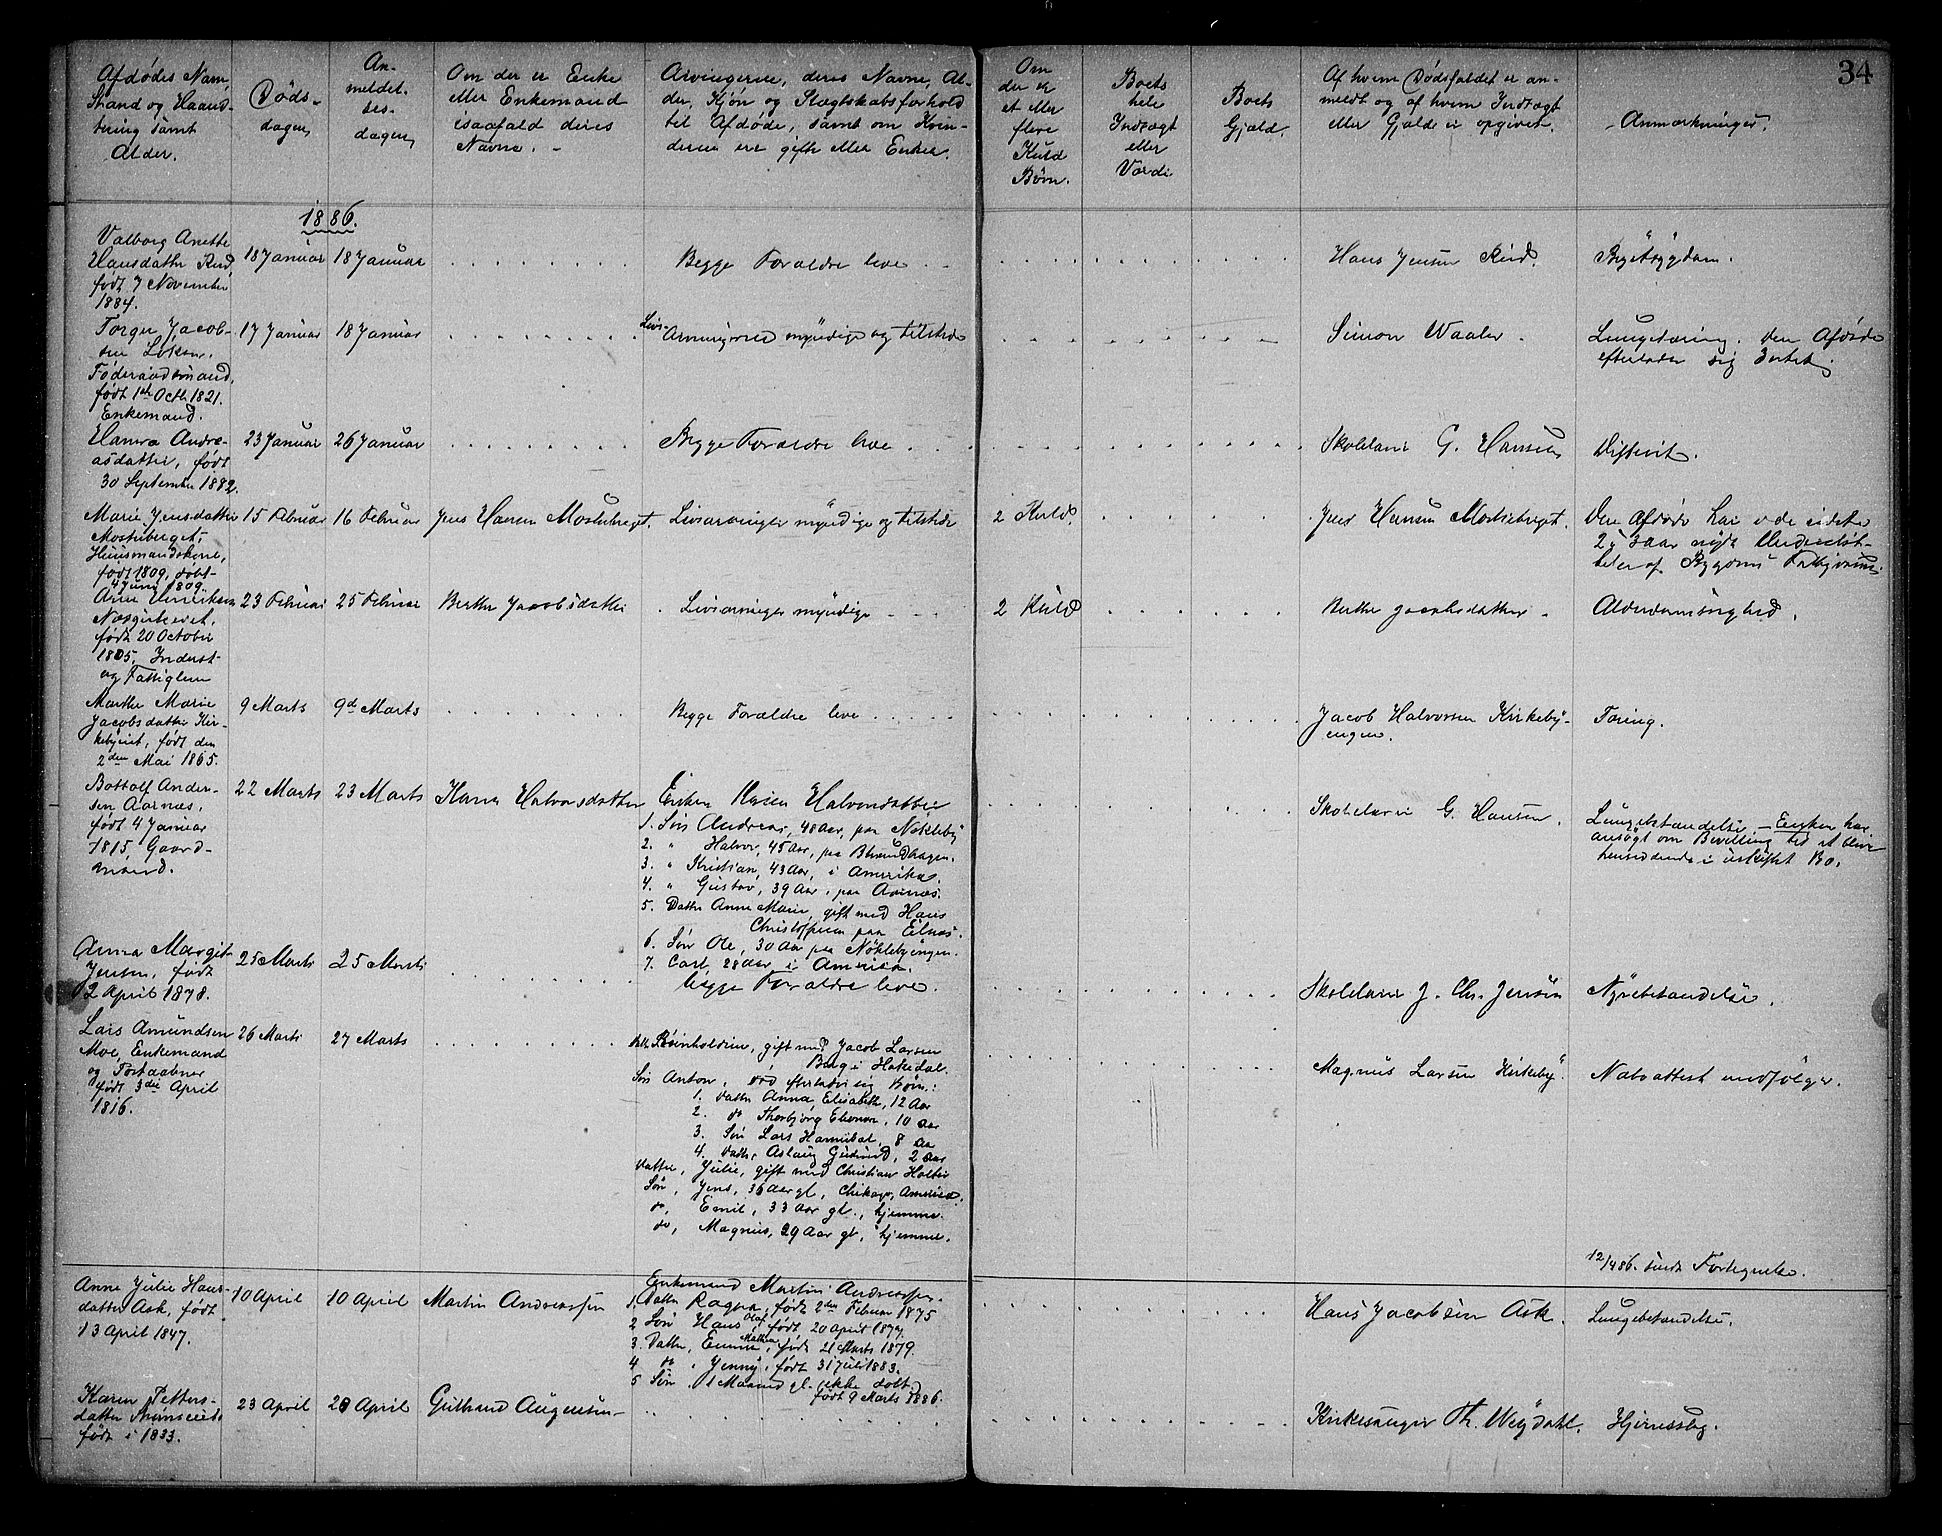 34
Afdødes Navn,
Stand og Haand-
tering samt
Alder.
Døds-
dagen,
An-
meldel-
ses-
dagen,
Om der er Enke
eller Enkemand
isaafald deres
Navne. -
Arvingerne, deres Navne, Al-
der, Kjøn og Slægtskabsforhold
til Afdøde, samt om Kvin-
derne ere gifte eller Enker.
Om
der er
et eller
flere
Kuld
Børn.
Boets
hele
Indtægt
eller
Værdi
Boets
Gjæld.
Af hvem Dødsfaldet er an-
meldt og af hvem Indtægt
eller Gjæld er opgivet.
Anmærkninger.
1886.
Valborg Anette
Hansdatter
født 7 November
1884.
18 Januar
18 Januar
Begge Forældre leve
Hans Jensen
Brystsygdom.
Torger Jacob-
sen Løken.
Føderaadsmand,
født 1ste Octb 1821.
Enkemand.
17 Januar
18 Januar
Livs-
Arvingerne myndige og tilstede
Simon Waaler.
Lungetæring. Den Afdøde
efterlader sig
Hanna Andre-
asdatter, født
30 September 1882.
23 Januar
26 Januar
Begge Forældre leve
Skolelærer G. Hansen
Difterit.
Marie Jensdatter
Mosteberget,
Huusmandskone,
født 1809, døbt
4 Juny 1809
15 Februar
16 Februar
Jens Hansen Mosteberget.
Livsarvinger myndige og tilstede
2 Kuld.
Jens Hansen Mosteberget.
Den Afdøde har i de sidste
2 á 3 aar nydt Understøt-
telse af Bygdens Fattigvæsen.
født 20 October
1805, Inderst
og Fattiglem
23 Februar
25 Februar
Berthe Jacobsdatter
Livsarvinger myndige
2 Kuld
Berthe Jacobsdatter
Alderdomssvaghed.
Marthe Marie
Jacobsdatter Kir-
kebyeiet, født den
2den Mai 1865.
9 Marts
9de Marts
Begge Forældre leve
Jacob Halvorsen Kirkeby-
engen.
Tæring.
Bottolf Ander-
sen Aarnæs,
født 4 Januar
1815, Gaard-
mand.
22 Marts
23 Marts
Karen Halvorsdatter
Enken Karen Halvorsdatter
1. Søn Andreas, 48 Aar, paa Nøkleby
2. " Halvor, 45 Aar, paa
3. " Kristian, 43 Aar, i Amerika.
4. " Gustav, 39 Aar, paa Aarnæs.
5. Datter Anne Marie, gift med Hans
Christoffersen paa Eilnæs.
6. Søn Ole, 30 Aar paa Nøklebyengen.
7. Carl, 28 aar i America.
Skolelærer G. Hansen.
Lungebetændelse. - Enken har
ansøgt om Bevilling til at blive
hensiddende i uskiftet Bo.
Anna Margit
Jensen, født
2 April 1878.
25 Marts
25 Marts
begge Forældre leve.
Skolelærer J. Chr. Jensen
Nyrebetændelse.
Lars Amundsen
Moe, Enkemand
og Postaabner
født 3die April
1816.
26 Marts
27 Marts
Datt. Reinholdine, gift med Jacob Larsen
Berg i Hakedal.
Søn Anton, død efterladt sig Børn:
1. Datter Anna Elisabeth, 12 Aar
2. do Thorbjørg Eleonor, 10 aar
3. Søn Lars Hannibal, 8 aar
4. Datter Aslaug Gudrund, 2 aar
Datter, Julie, gift med Christian Holter
Søn, Jens, 36 Aar gl, Chikago, America.
do, Emil, 33 Aar gl., hjemme.
do, Magnus, 29 Aar gl, hjemme.
Magnus Larsen Kirkeby.
Notoattest medfølger.
12/4 86. sendt Fortegnelse.
Anne Julie Hans-
datter Ask, født
13 April 1847.
10 April
10 April
Martin Andreassen
Enkemand Martin Andreassen.
1. Datter Ragna, født 2den Februar 1875
2 Søn Hans Olaf, født 20 April 1877.
3. Datter, Emma Mathea, født 21 Marts 1879.
4 do, Jenny, født 31 Juli 1883.
5 Søn, 1 Maaned gl. ikke døbt
født 9 Marts 1886.
Hans Jacobsen Ask.
Lungebetændelse.
Karen Petters-
datter
født i 1833.
23 April
28 April
Gulbrand Augensen
Kirkesanger Th. Weydahl.
Hjerneslag.